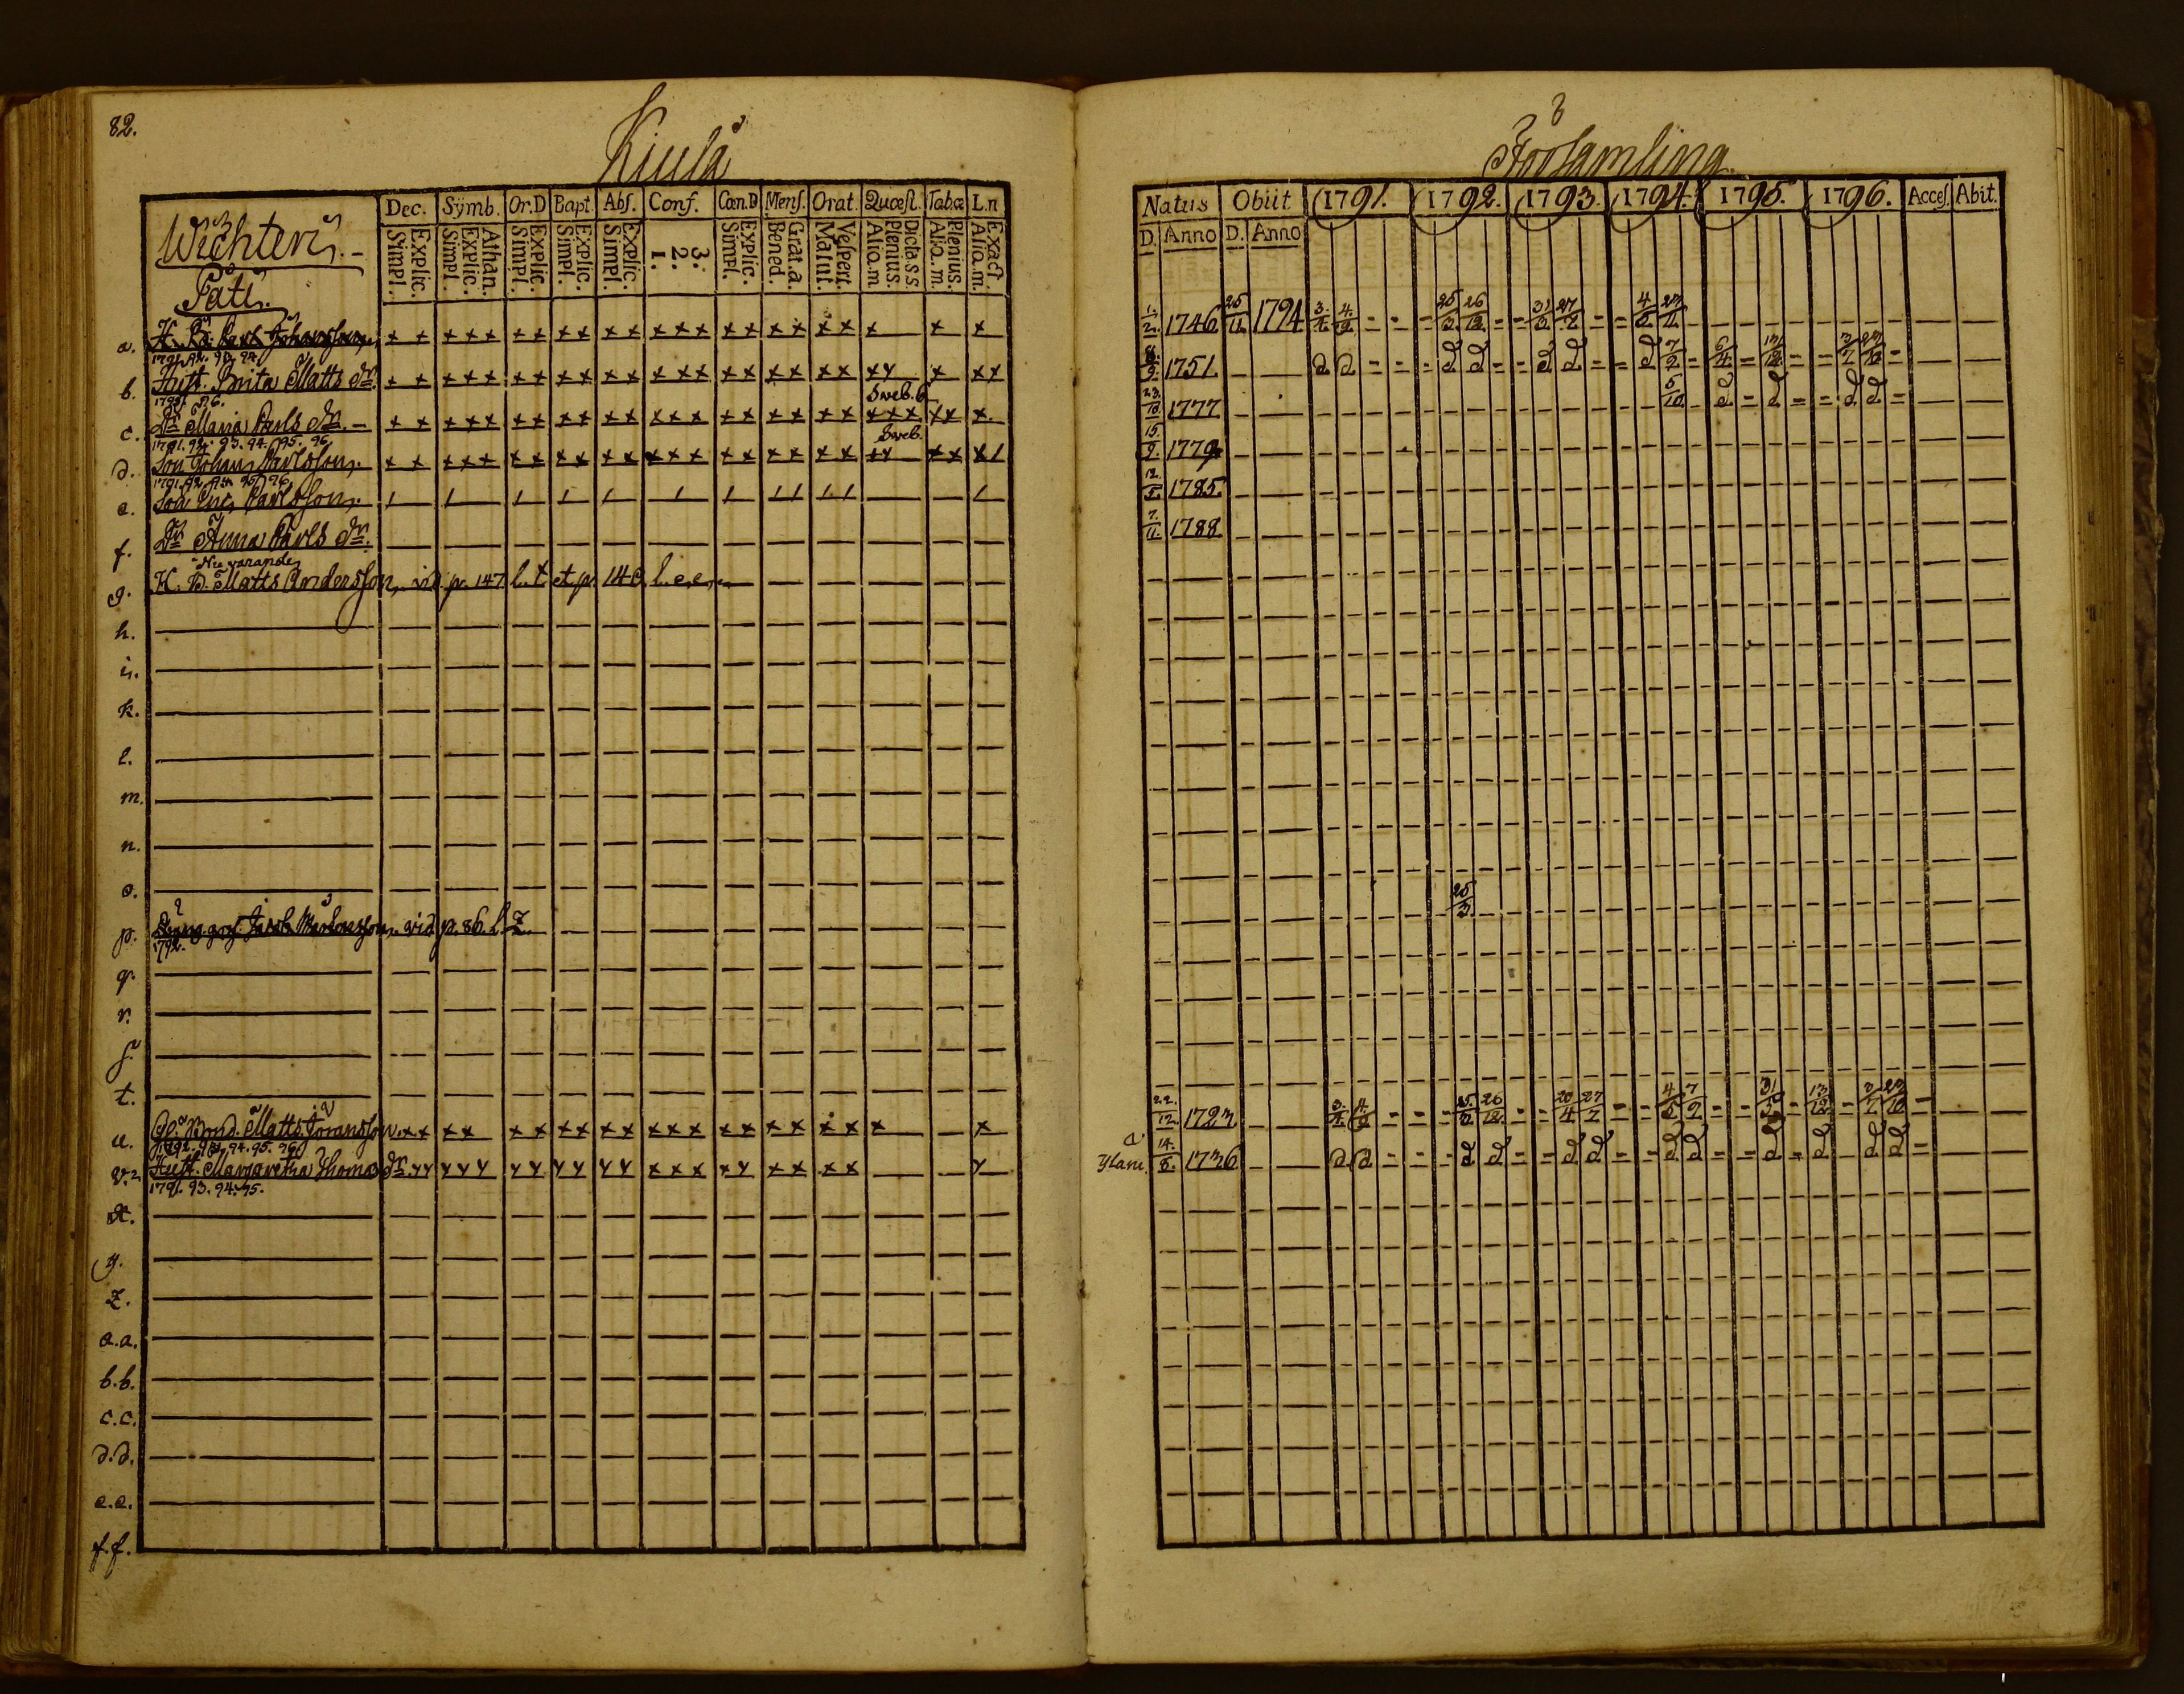 82.
Kiula
Wichteris.
Päti.
Dec. Symb. Or.D Bapt. Abs. Conf. Cœn.D Mens. Orat. Quæst. Tabæ L.n
Explic. Simpl. Athan. Explic. Simpl. Explic. Simpl. Explic. Simpl. Explic. Simpl. 3. 2. 1. Explic. Simpl. Grat.a. Bened. Vespert. Matut. Dicta s.s Plenius. Alio.m Plenius. Alio.m. Exact. Alio.m.
a. H. B. Carl Johansson x x x x x x x x x x x x x x x x x x x x x x x
1791. 92. 93. 94.
b. Hust. Brita Matts dr. x x x x x x x x x x x x x x x x x x x x x y x x y
1793. 96. Sweb. 6
c. Dr Maria Carls dr. x x x x x x x x x x x x x x x x x x x x x x x x x x
1791. 92. 93. 94. 95. 96. Sweb.
d. Son Johan Carlsson. x x x x x x x x x x x x x x x x x x x x x y x x x /
1791. 92. 94. 95. 96.
e. Son Eric Carlsson. / / / / / / / / / / / /
f. Dr Anna Carls dr.
Nu varande
g. H. B. Matts Andersson, vid p. 147 l. t. et p. 140 l. e.e.
h.
i.
k.
l.
m.
n.
o.
p. Jacob vid p. 86. l. Z.
1792.
q.
r.
s.
t.
u. Bond. Matts Göransson x x x x x x x x x x x x x x x x x x x x x
1792. 93. 94. 95. 96
v. Hust. Margaretha Thomas dr. y y y y y y y y y y y x x x x y x x x x y
1791. 93. 94. 95.
x.
y.
z.
a.a.
b.b.
c.c.
d.d.
e.e.
f.f.
Församling
Natus Obiit 1791. 1792. 1793. 1794. 1795. 1796. Acces. Abit.
D. Anno D. Anno
1/2. 1746 25/11. 1794 3/4. 4/9. 25/3 26/12. 27 4 23/11.
9. 1751 d d d d d d d 7/2 6/4 13/12 3/7 23/10
23/10 1777 5/10 d d d d
15. 1779
12. 1785
7/11. 1788
25/3
22/12 1723 3/4. 4/9 25/3 26/12 20/4 27 4 7/2 31 13/12 3/7 23/10
Ylane. 14/8. 1736 d d d d d d d d d d d d